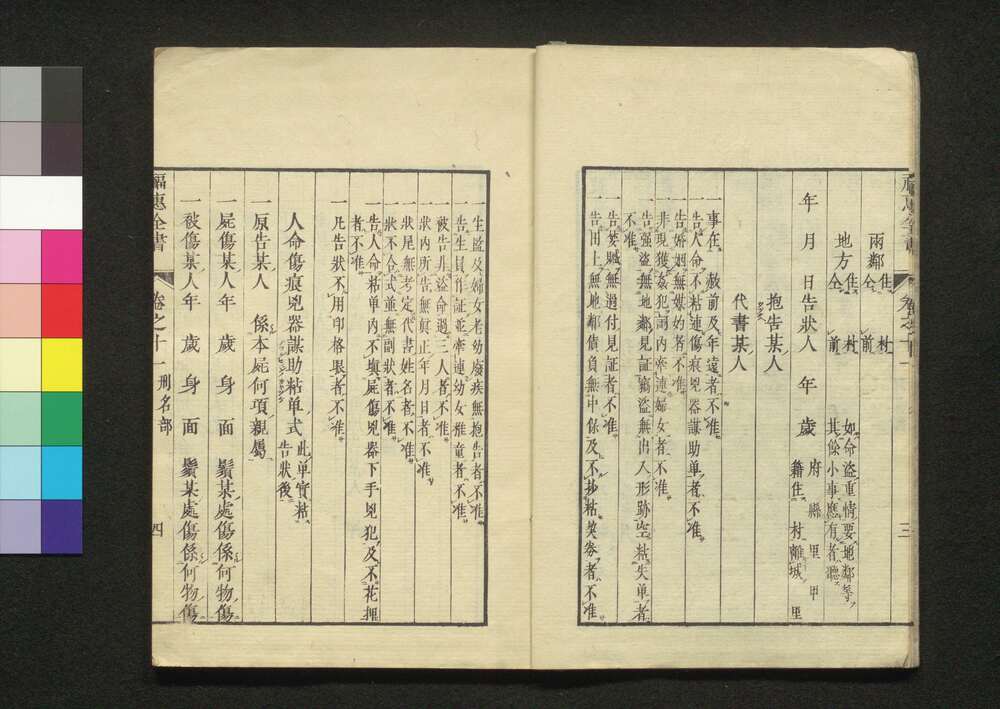 兩鄰 住 村 前
仝
地方 住 村 前 如命盜重情要地鄰等
仝 其餘小事應有者聽
年 月 日告狀人 年 歲 府 縣 里 甲
籍住 村離城 里
抱告某人
代書某人
一事在 赦前及年遠者不准
一告人命不粘連傷痕兇器謀助單者不准
一非現獲姦犯詞內牽連婦女者不准
一告婚姻無媒妁者不准
一告强盜無地鄰見証竊盜無出入形跡空粘失单者
不准
一告婪贓無過付見証者不准
一告田土無地鄰債負無中保及不抄粘契劵者不准
三
一生監及婦女老幼廢疾無抱告者不准
一告生員作証並牽連幼女稚童者不准
一被告非盜命過三人者不准
一狀內所告無眞正年月日者不准
一狀尾無考定代書姓名者不准
一狀不合式並無副狀者不准
一告人命粘单內不塡屍傷兇器下手兇犯及不花押
者不准
一凡告狀不用印格眼者不准
人命傷痕兇器謀助粘单式 此单實粘
告狀後
一原告某人 係本屍何項親屬
一屍傷某人年 歲 身 面 鬚某處傷係何物傷
一被傷某人年 歲 身 面 鬚某處傷係何物傷
福惠全書 卷之十一 刑名部 四